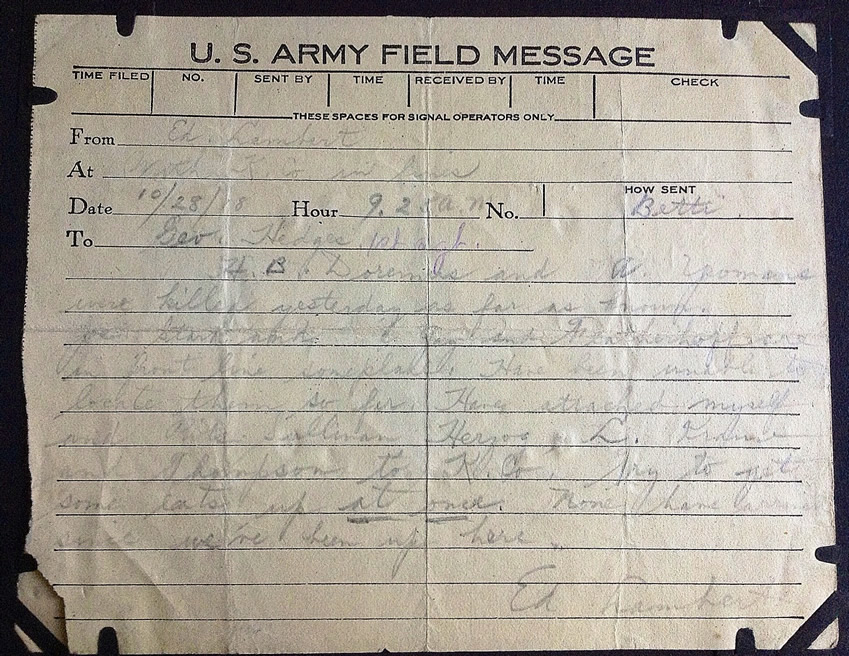 U. S. ARMY FIELD MESSAGE
TIME FILED NO. SENT BY TIME RECEIVED BY TIME CHECK
THESE SPACES FOR SIGNAL OPERATORS ONLY
From Ed. Lambert
At With K. Co in
Date 10/28/18 Hour 9.25 a.m No. HOW SENT
To Geo. Hedges 1st sgt.
H. B. Doremus and A. Yeomans
were killed yesterday as far as known.
and
in front line someplace. Have been unable to
locate them so far. Have attached myself
and Sullivan Herzog, L.
and Thompson to K. Co. Try to get
some eats up at once. None have
since we've been up here.
Ed Lambert